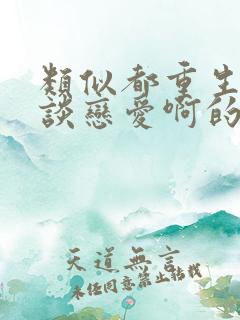 類似都重生
談戀愛啊的
天道無言
未經同意禁止轉載